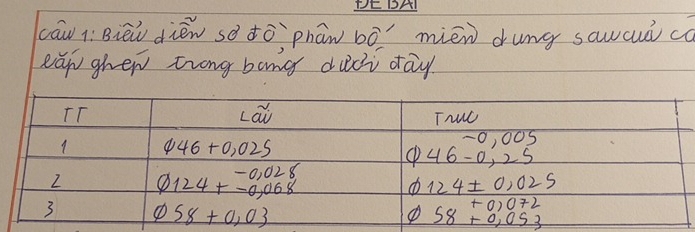 ĐỀ BÀI
câu 1: Biểu diễn sơ đồ phân bố miền dung sau của cá
lắp ghép trong bảng dưới đây.
TT Lỗ Trục
1 φ46 +0,025 φ46 -0,005 -0,25
2 φ124 + -0,028 -0,068 φ124 ± 0,025
3 φ58 +0,03 φ58 +0,072 +0,053